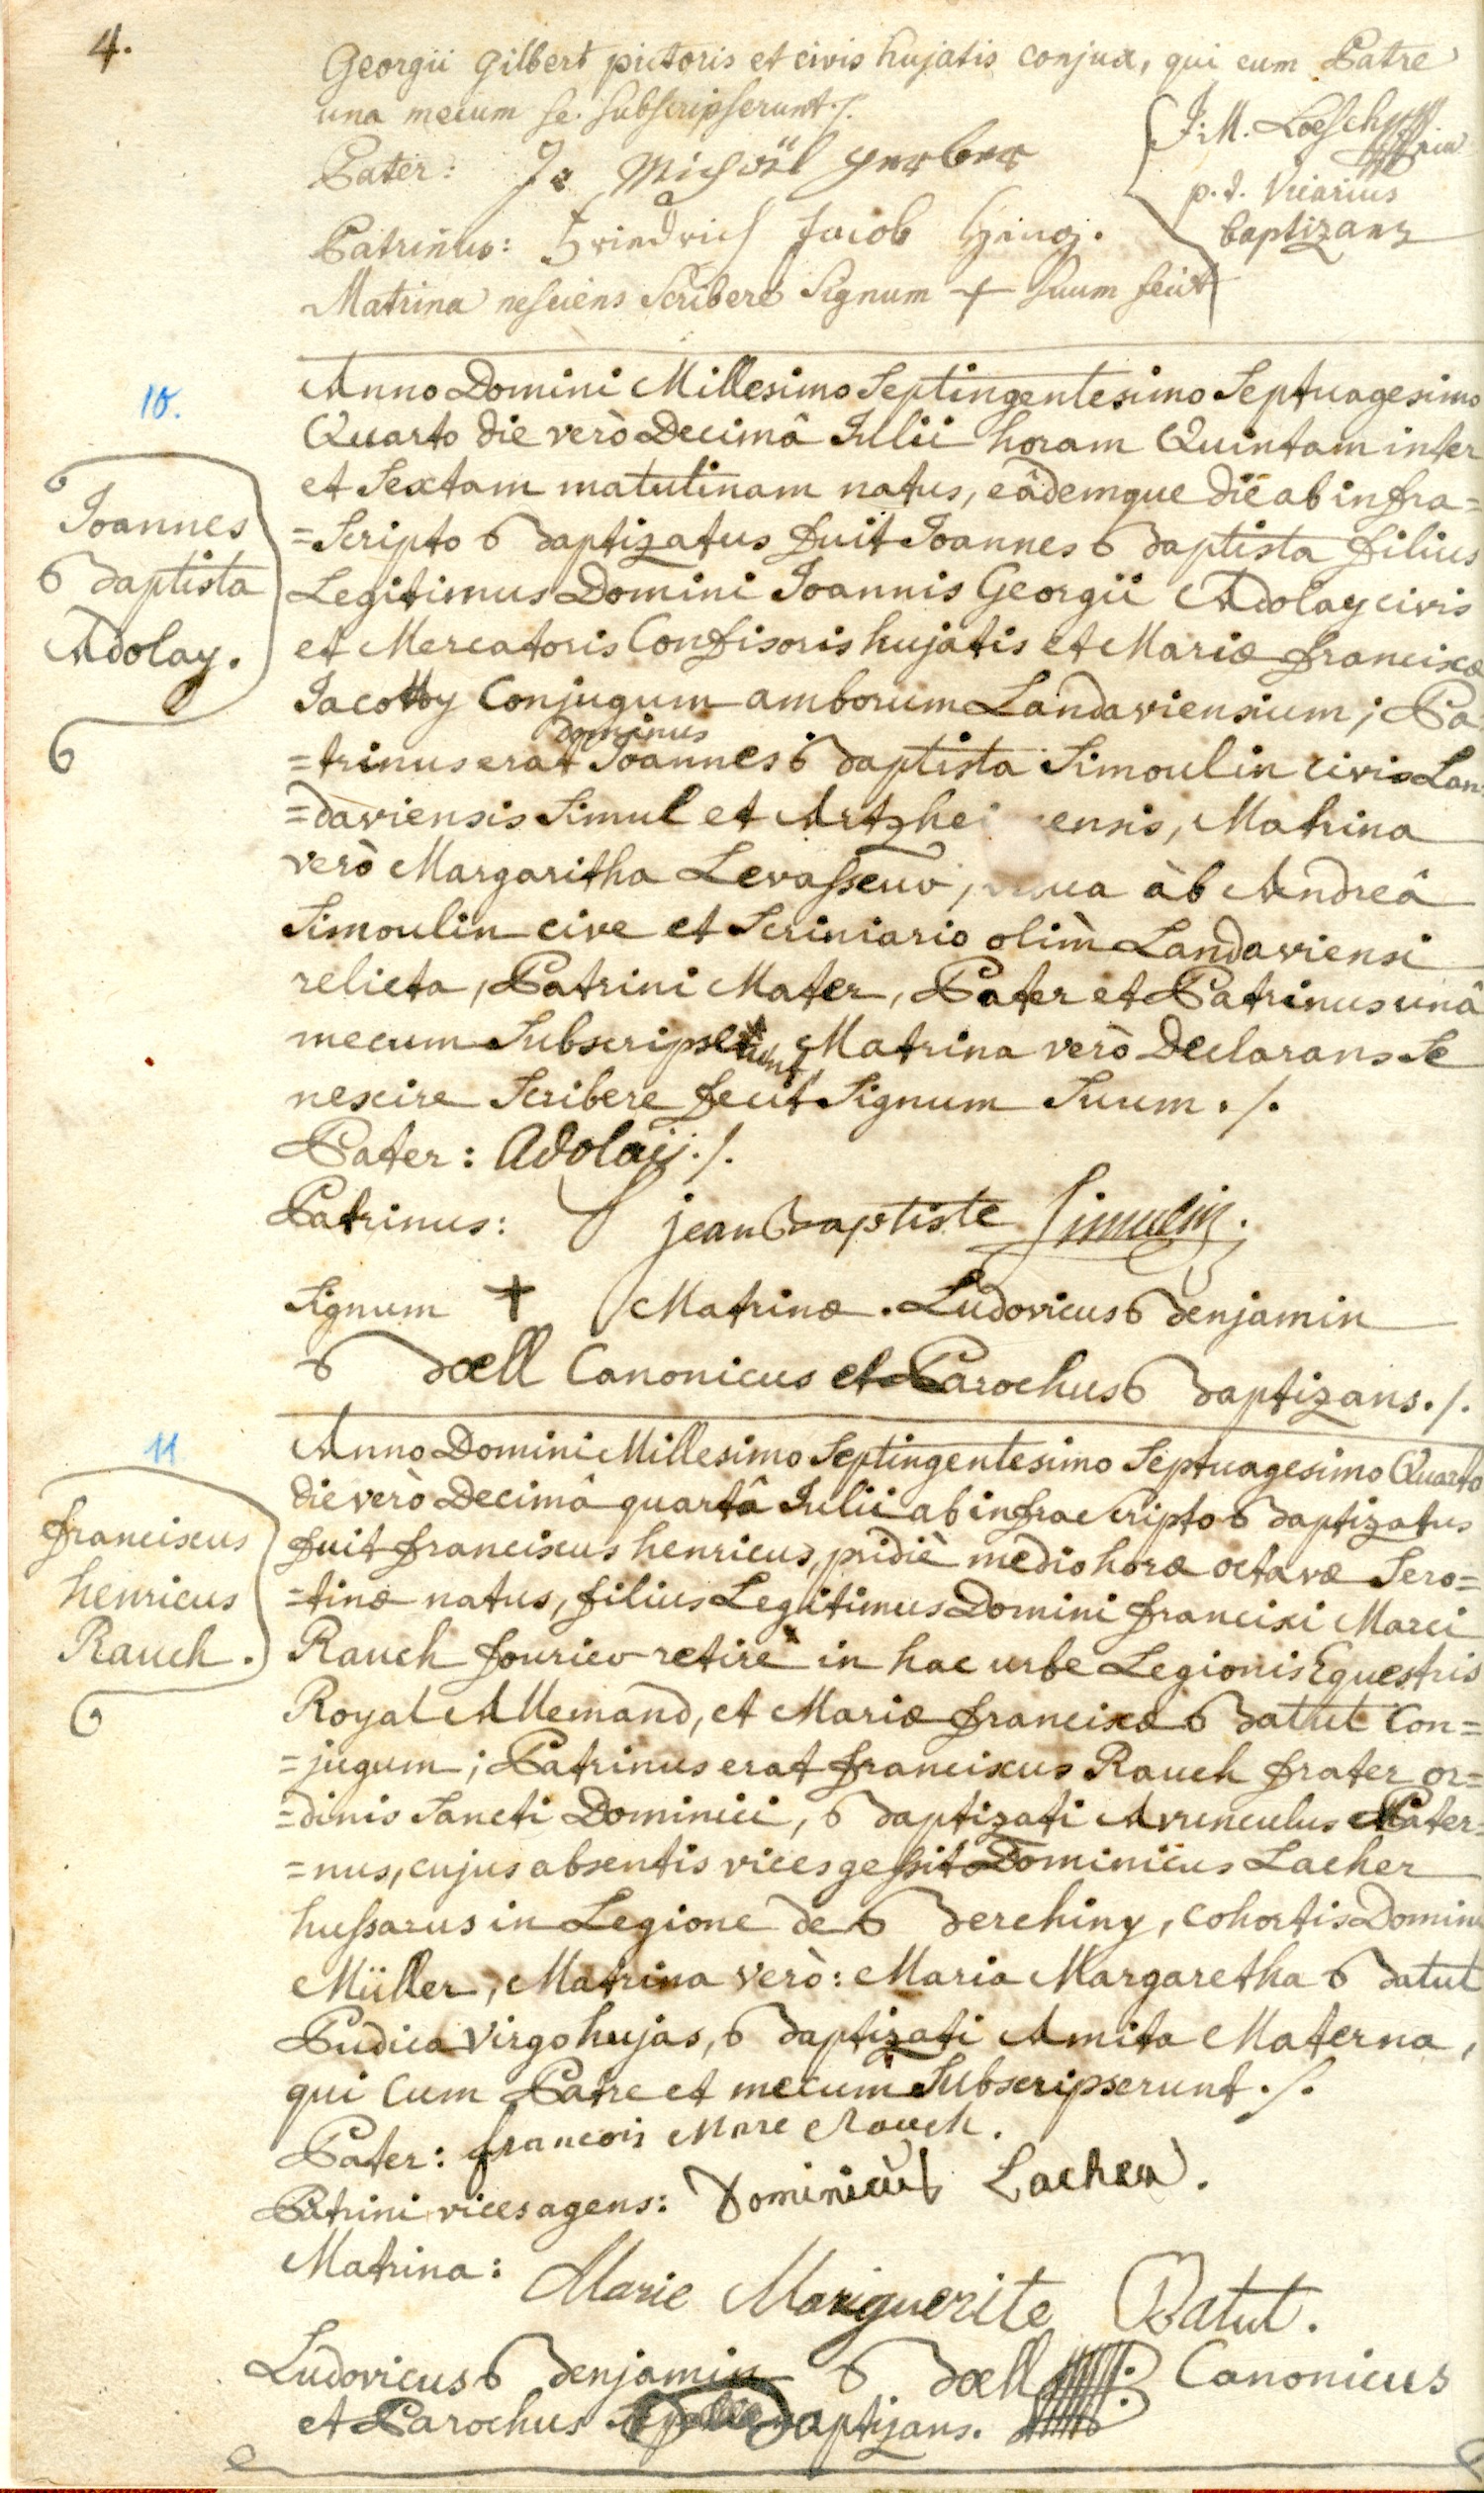 4.
Georgii Gilbert pictoris et civis hujatis conjux, qui cum Patre
una mecum se subscripserunt ./.
Pater: Jo Michäel gerber
J: M. Loeschy
p. t. Vicarius
baptizans
Patrinus: Friedrich Jacob
Matrina nesciens Scribere Signum + suum fecit
10.
Joannes
Baptista
Adolay.
Anno Domini Millesimo Septingentesimo Septuagesimo
Quarto die verò Decimâ Julii horam Quintam inter
et Sextam matutinam natus, eâdemque die ab infra=
=Scripto Baptizatus fuit Joannes Baptista filius
Legitimus Domini Joannis Georgii Adolay civis
et Mercatoris Confisoris hujatis et Mariæ franciscæ
Jacotty Conjugum amborum Landaviensium; Pa
=trinus erat dominus Joannes Baptista Simoulin civis Lan=
=daviensis Simul et Artzhei ensis, Matrina
verò Margaritha Levasseur, àb Andreâ
Simoulin cive et Scriniario olim Landaviensi
relicta, Patrini Mater, Pater et Patrinus unâ
mecum Subscripserunt, Matrina verò Declarans Se
nescire Scribere fecit Signum Suum ./.
Pater: Adolaÿ ./.
Patrinus: jean Baptiste Simulin.
Signum + Matrinæ. Ludovicus Benjamin
Bæll Canonicus et Parochus Baptizans ./.
11
franciscus
henricus
Rauch.
Anno Domini Millesimo Septingentesimo Septuagesimo Quarto
die verò Decimâ quartâ Julii ab infrascripto Baptizatus
fuit franciscus henricus, pridiè medio horæ octavæ Sero=
=tinæ natus, filius Legitimus Domini francisci Marci
Rauch fourier retiré in hac urbe Legionis Equestris
Royal Allemand, et Mariæ franciscæ Batut Con=
=jugum; Patrinus erat franciscus Rauch frater or=
=dinis Sancti Dominici, Baptizati Avunculus Pater=
=nus, cujus absentis vices gessit Dominicus Lacher
hussarus in Legione de Berchiny, cohortis Domini
Müller, Matrina verò: Maria Margaretha Batut
Pudica Virgo hujas, Baptizati Amita Materna,
qui Cum Patre et mecum Subscripserunt ./.
Pater: francois Marc Rauch.
Patrini vices agens: Dominicus Lacher.
Matrina: Marie Mariguerite Batut.
Ludovicus Benjamin Bæll Canonicus
et Parochus Baptizans.